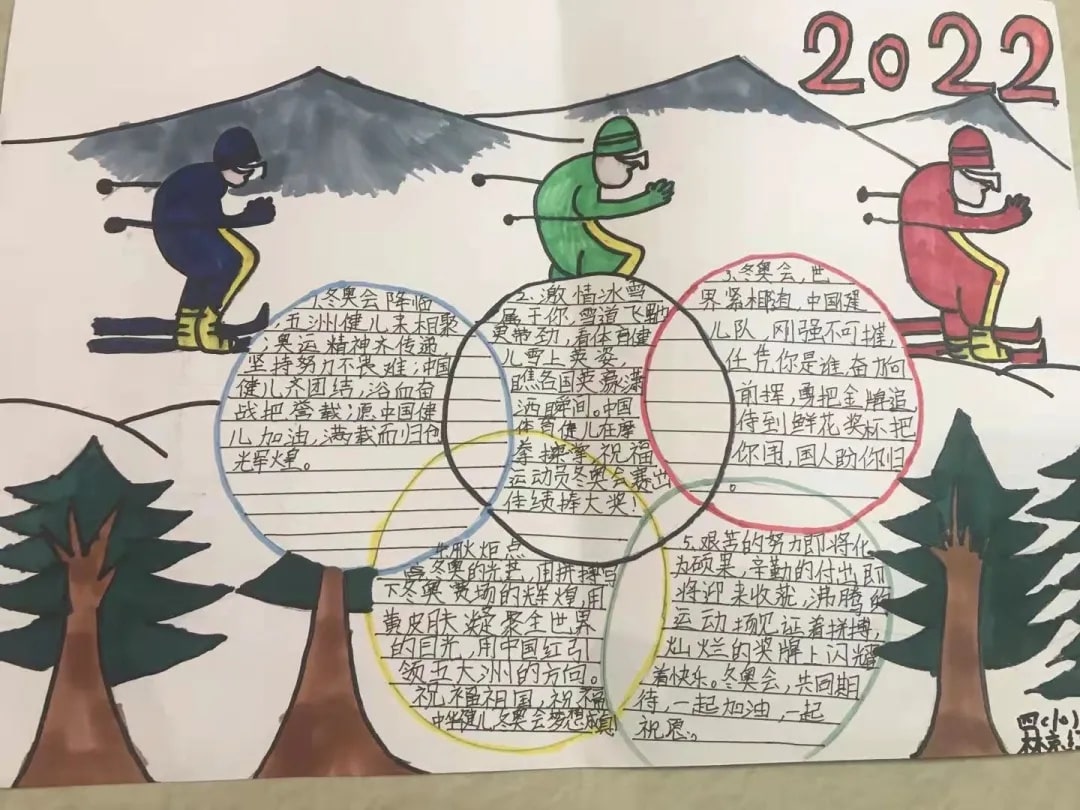 2022
1.冬奥会降临
,五洲健儿来相聚
;奥运精神齐传递
坚持努力不畏难;中国
健儿齐团结,浴血奋
战把誉载;愿中国健
儿加油,满载而归
光辉煌。
2.激情冰雪
属于你,雪道飞驰
更带劲,看体育健
儿雪上英姿,
瞧各国英豪潇
洒瞬间。中国
体育健儿在摩
拳擦掌,祝福
运动员冬奥会赛出
佳绩捧大奖!
3.冬奥会,世
界紧相连,中国健
儿队,刚强不可摧,
任凭你是谁,奋力向
前挥,勇把金牌追,
待到鲜花奖杯把
你围,国人盼你归
。
4.用火炬点
冬奥的光芒,用拼搏写
下冬奥赛场的辉煌,用
黄皮肤凝聚全世界
的目光,用中国红引
领五大洲的方向。
祝福祖国,祝福
中华健儿冬奥会梦想成真
5.艰苦的努力即将化
为硕果,辛勤的付出即
将迎来收获,沸腾的
运动场见证着拼搏,
灿烂的奖牌上闪耀
着快乐。冬奥会,共同期
待,一起加油,一起
祝愿。
四(10)
林京